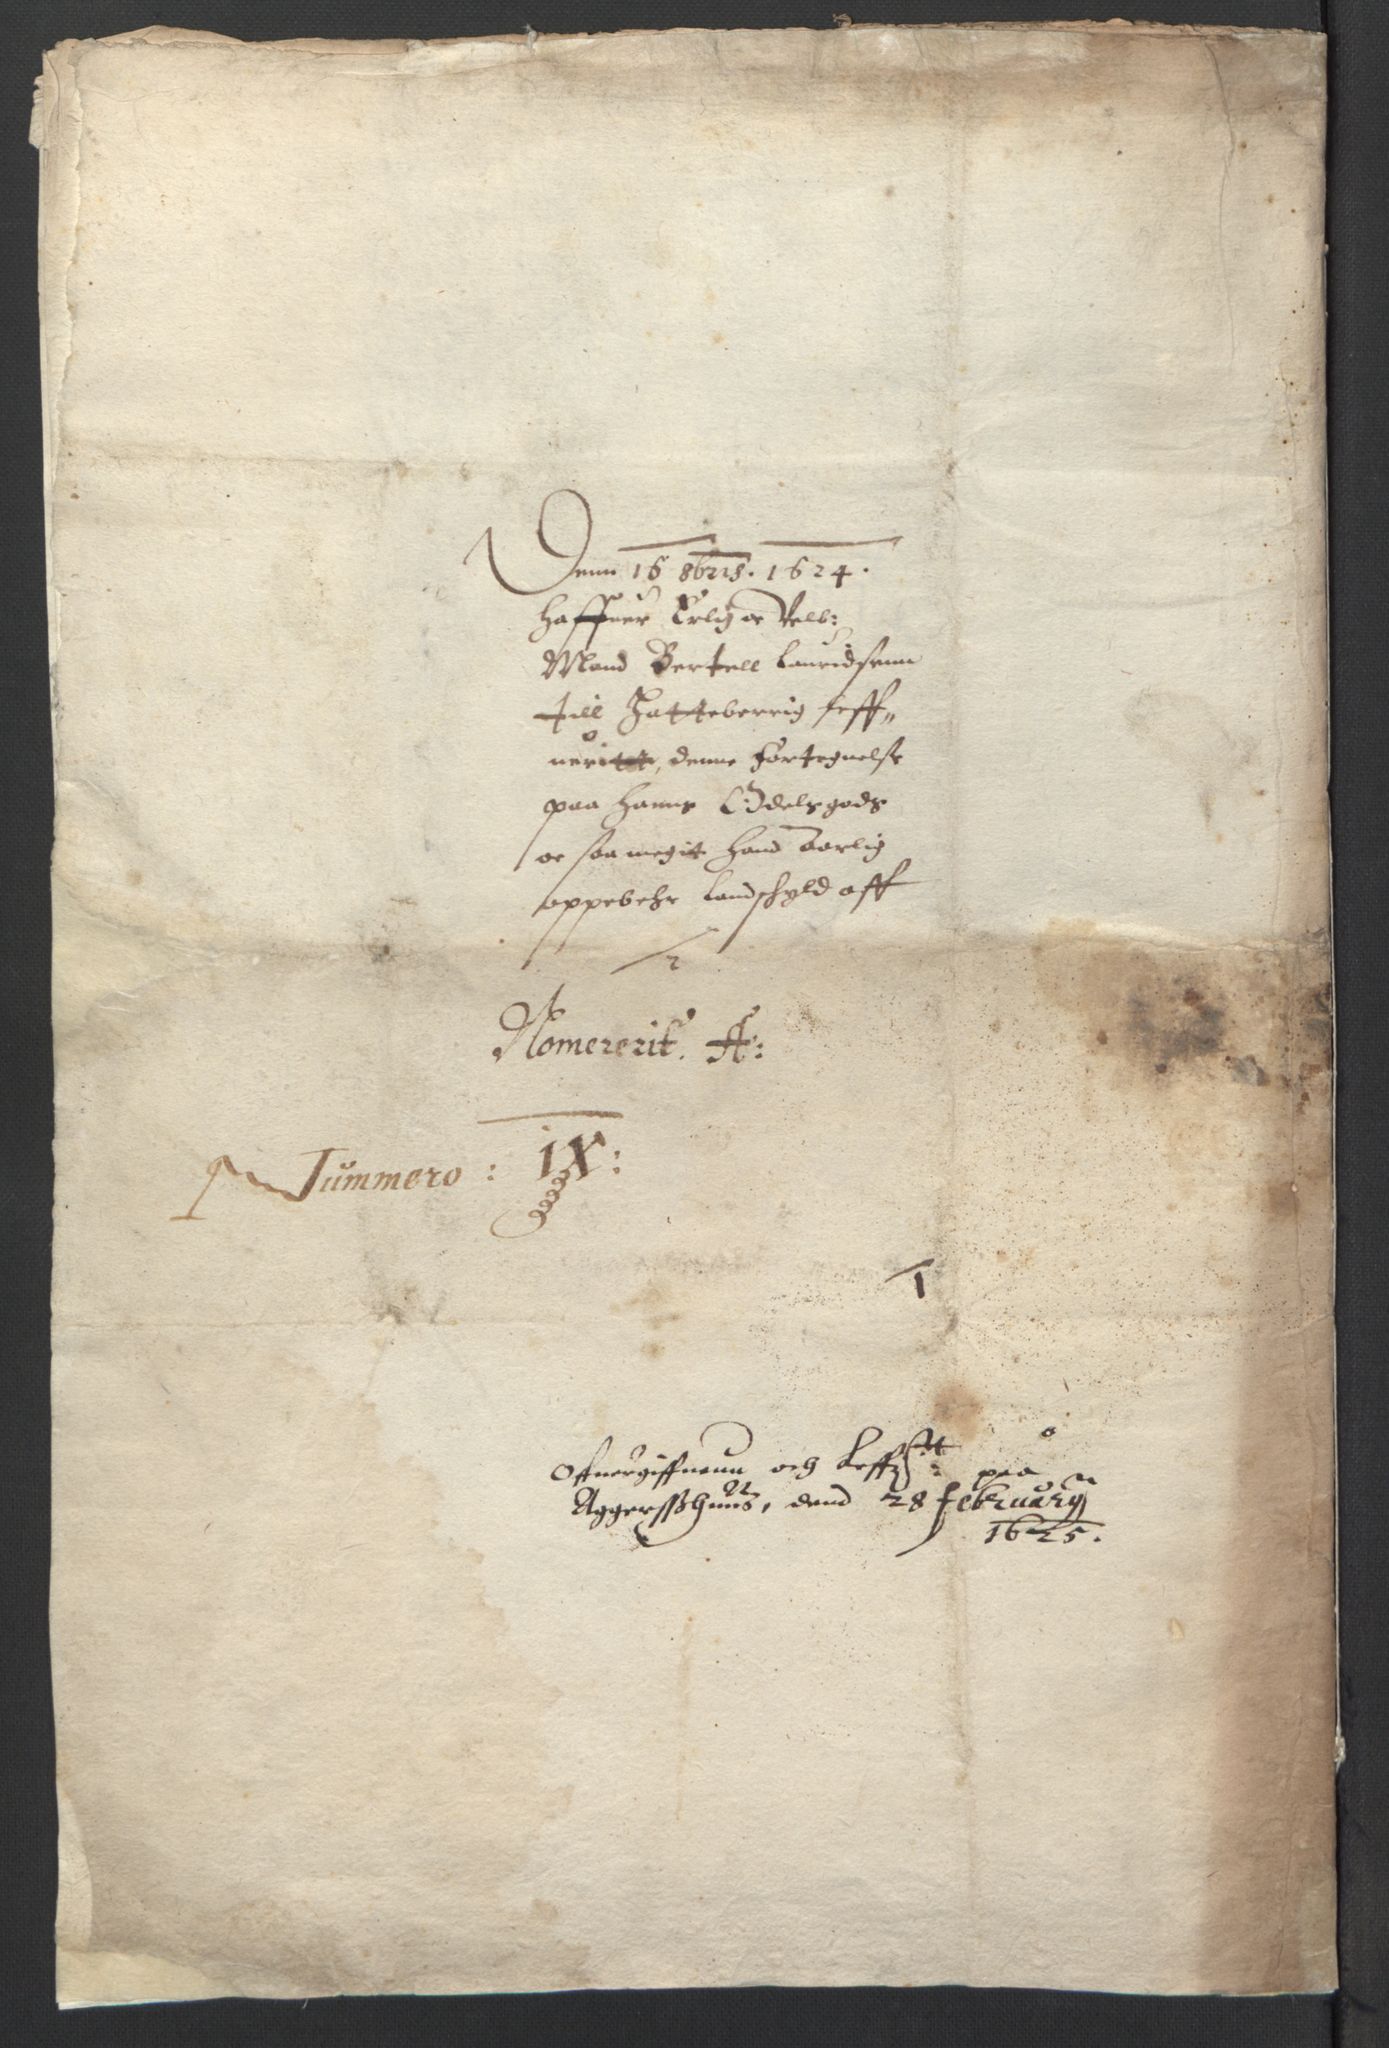 Denn 16 8bris. 1624.
Haffuer Erlig oc Velb:
Mand Bertell Lauridsenn
till Hatteberrig leff„
ueritt, denne Fortegnelse
paa hanns Odelsgods
oc saa megit hand aarlig
oppebehr Landschyld aff
Nomererit. A:
Nummero: IX:
1
Offuergiffuenn och Leff: paa
Aggersshuus, dend 28 february
1625.